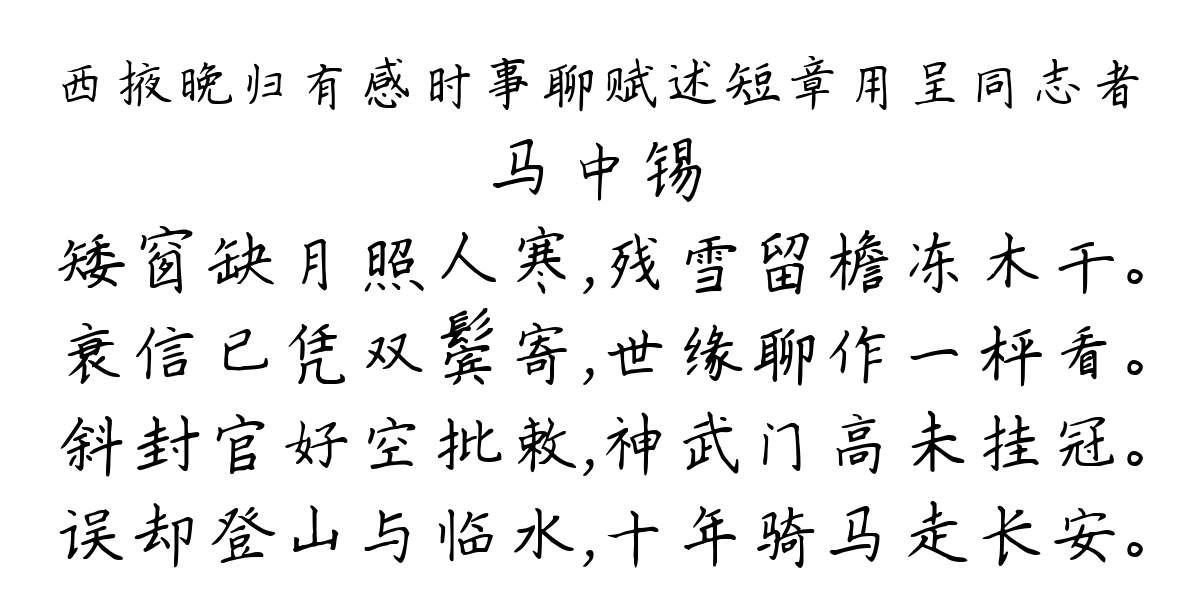 西掖晚归有感时事聊赋述短章用呈同志者
马中锡
矮窗缺月照人寒,残雪留檐冻木干。
衰信已凭双鬓寄,世缘聊作一枰看。
斜封官好空批敕,神武门高未挂冠。
误却登山与临水,十年骑马走长安。